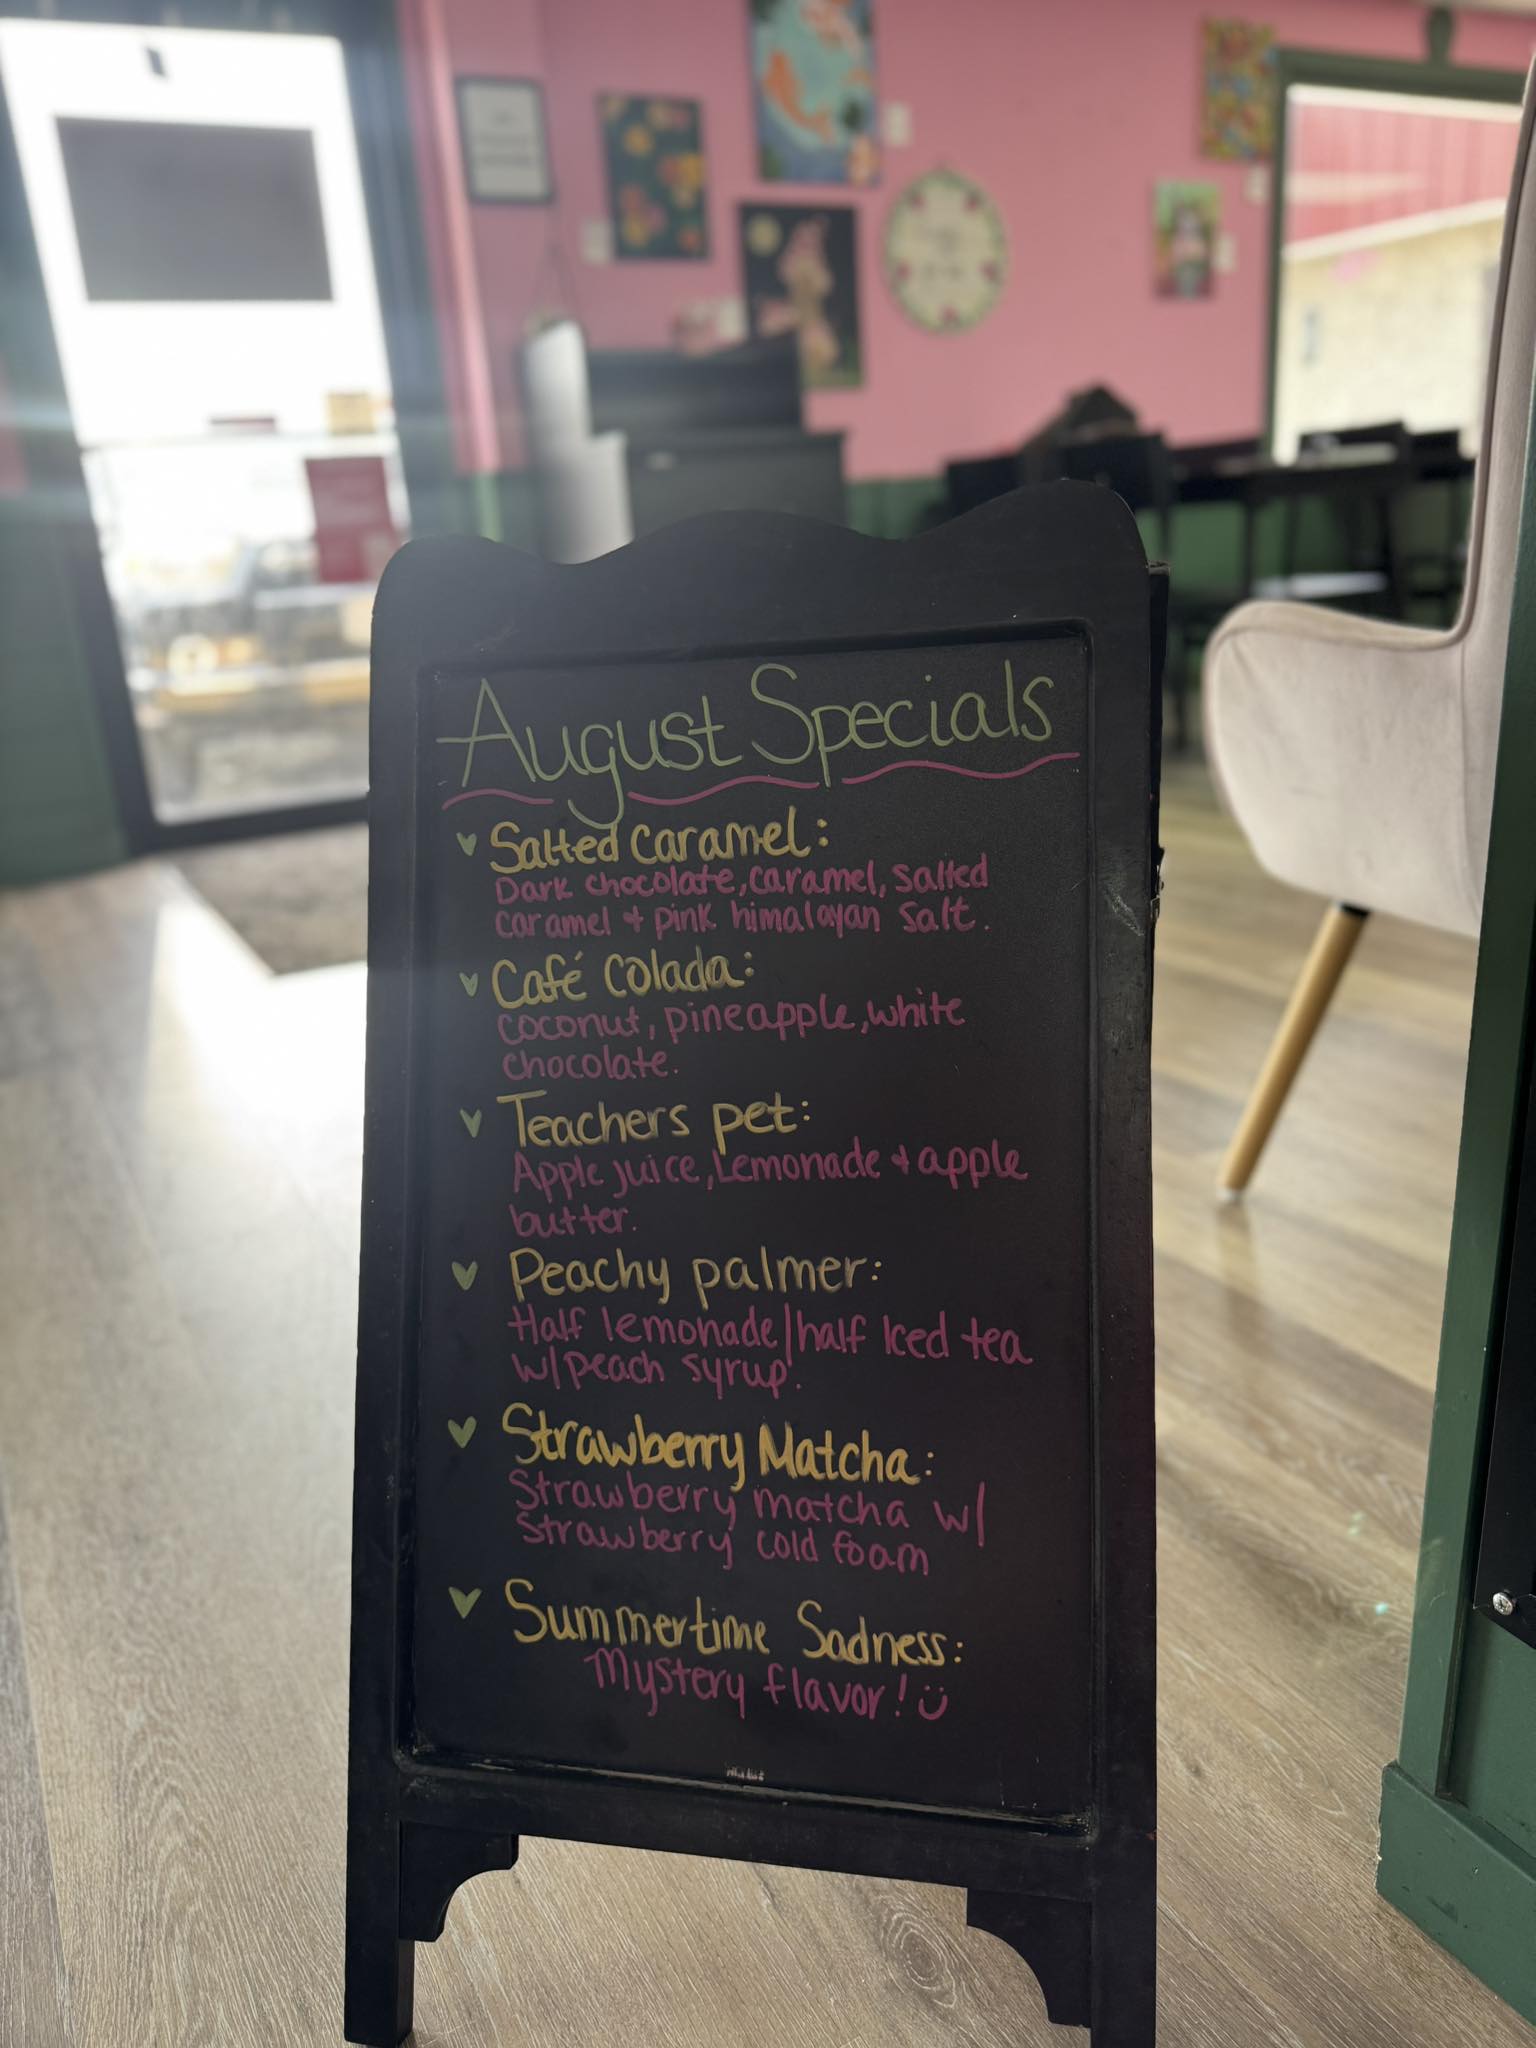 August Specials
Salted caramel:
Dark chocolate, caramel, salted
caramel + pink himalayan salt.
Café Colada:
coconut, pineapple, white
chocolate.
Teachers pet:
Apple juice, Lemonade + apple
butter.
Peachy palmer:
Half lemonade/half Iced tea
w/peach syrup.
Strawberry Matcha:
Strawberry matcha w/
Strawberry cold foam
Summertime Sadness:
Mystery flavor!